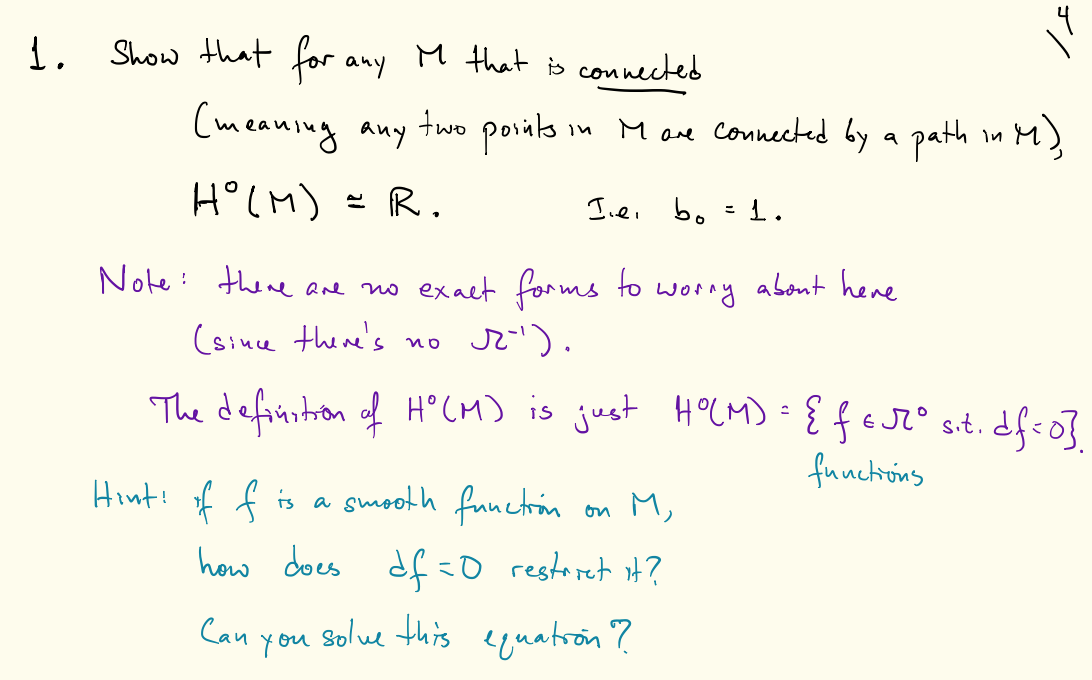 4
1. Show that for any M that is connected
(meaning any two points in M are connected by a path in M),
H⁰(M) ≃ ℝ. I.e. b₀ = 1.
Note: there are no exact forms to worry about here
(since there's no Ω⁻¹).
The definition of H⁰(M) is just H⁰(M) = {f ∈ Ω⁰ s.t. df=0}.
functions
Hint: if f is a smooth function on M,
how does df=0 restrict it?
Can you solve this equation?